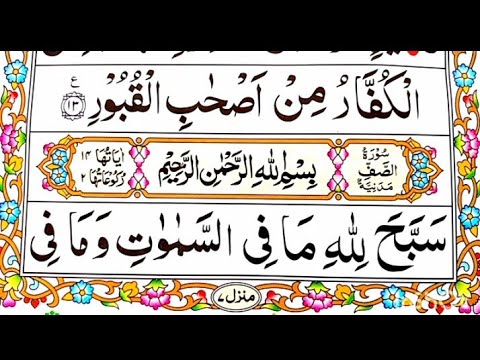 الْكُفَّارُ مِنْ اَصْحٰبِ الْقُبُوْرِ ۝۱۳ ع
سُوْرَةُ الصَّفِّ مَدَنِيَّةٌ
بِسْمِ اللهِ الرَّحْمٰنِ الرَّحِيْمِ
اٰيَاتُهَا ۱۴
رُكُوْعَاتُهَا ۲
سَبَّحَ لِلّٰهِ مَا فِي السَّمٰوٰتِ وَمَا فِي
منزل ۷